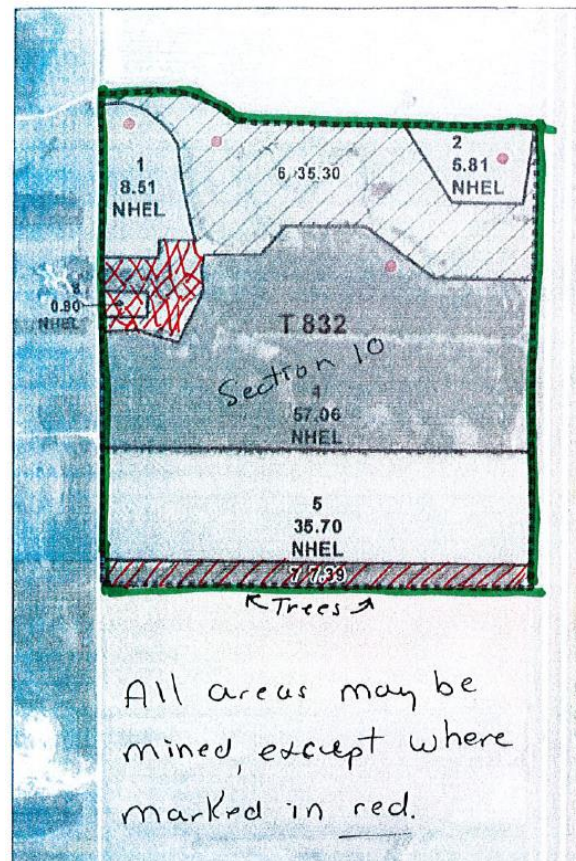 1
8.51
NHEL
2
5.81
NHEL
6 35.30
8
0.80
NHEL
T 832
Section 10
4
57.06
NHEL
5
35.70
NHEL
7 7.39
Trees
All areas may be
mined, except where
marked in red.